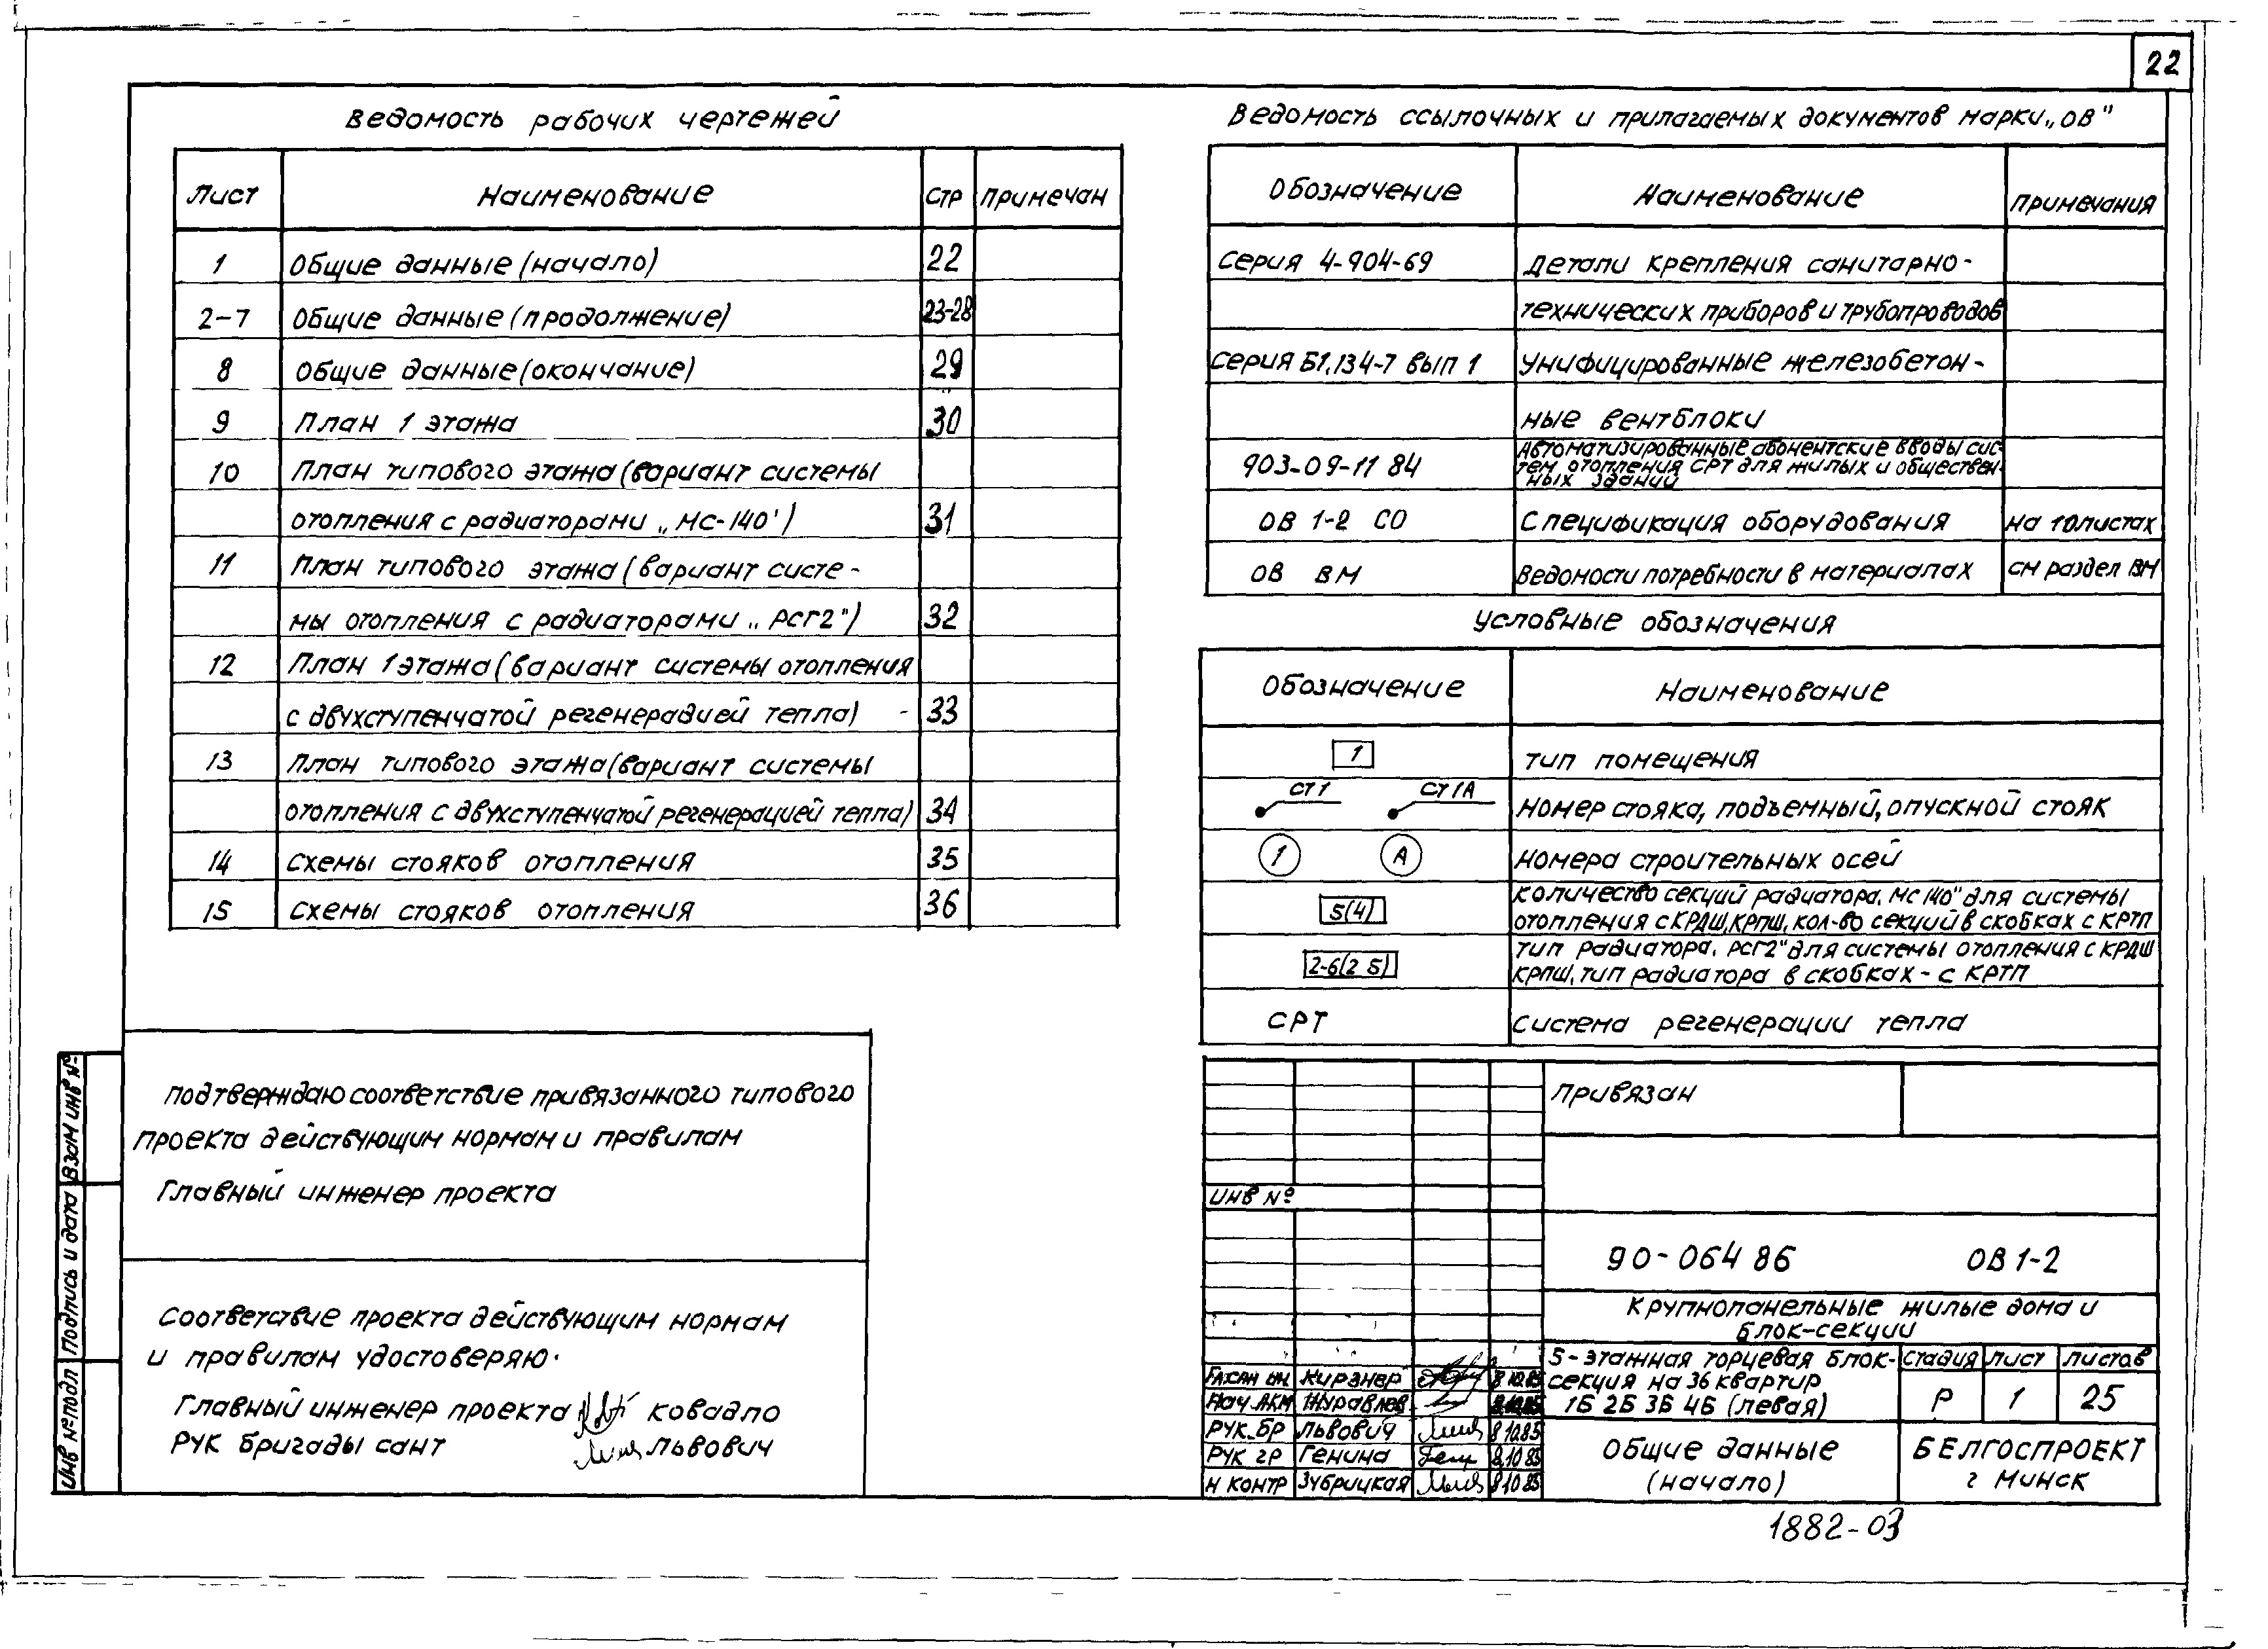 22
Ведомость рабочих чертежей
Лист Наименование Стр Примечан
1 Общие данные (начало) 22
2-7 Общие данные (продолжение) 23-28
8 Общие данные (окончание) 29
9 План 1 этажа 30
10 План типового этажа (вариант системы
отопления с радиаторами „МС-140") 31
11 План типового этажа (вариант систе-
мы отопления с радиаторами „РСГ2") 32
12 План 1 этажа (вариант системы отопления
с двухступенчатой регенерацией тепла) 33
13 План типового этажа (вариант системы
отопления с двухступенчатой регенерацией тепла) 34
14 Схемы стояков отопления 35
15 Схемы стояков отопления 36
Ведомость ссылочных и прилагаемых документов марки „ОВ"
Обозначение Наименование Примечания
Серия 4-904-69 Детали крепления санитарно-
технических приборов и трубопроводов
Серия Б1.134-7 вып 1 Унифицированные железобетон-
ные вентблоки
903-09-11 84 Автоматизированные абонентские вводы сис-
тем отопления СРТ для жилых и обществен-
ных зданий
ОВ 1-2 СО Спецификация оборудования на 10 листах
ОВ ВМ Ведомости потребности в материалах см раздел ВМ
Условные обозначения
Обозначение Наименование
1 Тип помещения
Ст 1 Ст 1А Номер стояка, подъемный, опускной стояк
1 А Номера строительных осей
5(4) Количество секций радиатора „МС 140" для системы
отопления с КРДШ, КРПШ, кол-во секций в скобках с КРТП
2-6(2 5) Тип радиатора „РСГ2" для системы отопления с КРДШ
КРПШ, тип радиатора в скобках - с КРТП
СРТ Система регенерации тепла
Подтверждаю соответствие привязанного типового
проекта действующим нормам и правилам
Главный инженер проекта
Соответствие проекта действующим нормам
и правилам удостоверяю.
Главный инженер проекта Ковадло
Рук бригады сант Львович
Взам инв №
Подпись и дата
Инв № подл
Привязан
Инв №
90-064 86 ОВ 1-2
Крупнопанельные жилые дома и
блок-секции
5-этажная торцевая блок-
секция на 36 квартир
1Б 2Б 3Б 4Б (левая)
Стадия Лист Листов
Р 1 25
Кирзнер 8 10.85
Нач АКМ Журавлев
Рук.бр Львович 8 10.85
Рук гр Генина 8.10 85
Н контр Зубрицкая 8 10 85
Общие данные
(начало)
БЕЛГОСПРОЕКТ
г Минск
1882-03